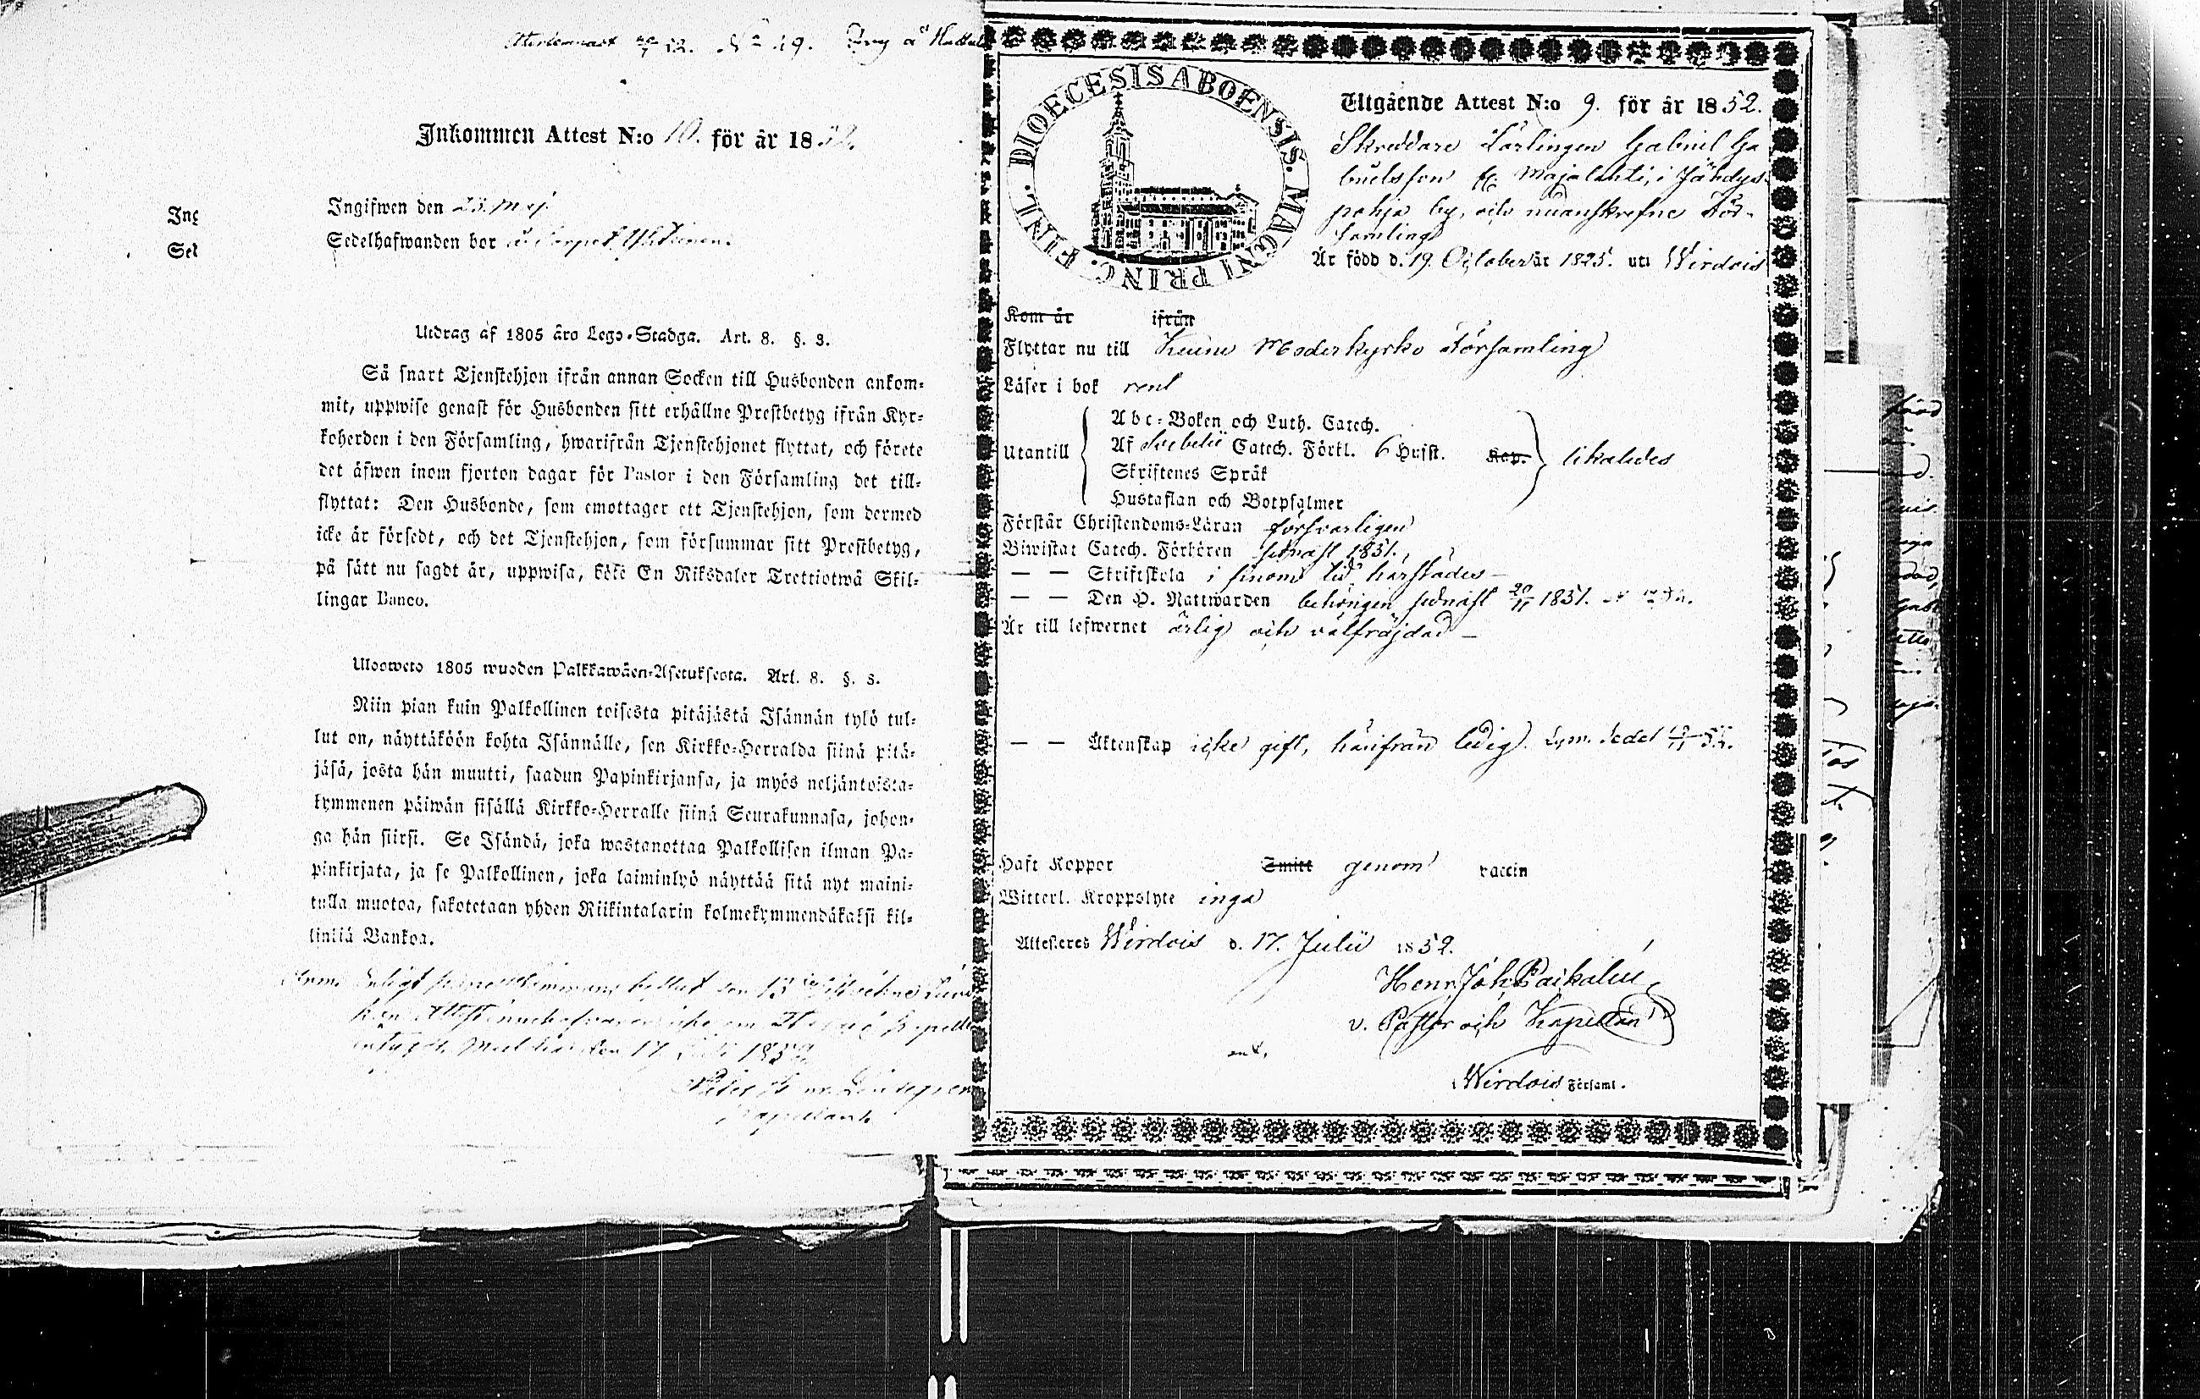 N:o 49.
Inkommen Attest N:o 10. för år 1852.
Ingifwen den 23. Maj
Sedelhafwanden bor å
Ing
Sel
Utdrag af 1805 års Lego-Stadga. Art. 8. §. 3.
Så snart Tjenstehjon ifrån annan Socken till Husbonden ankom-
mit, uppwise genast för Husbonden sitt erhållne Prestbetyg ifrån Kyr-
koherden i den Församling, hwarifrån Tjenstehjonet flyttat, och förete
det äfwen inom fjorton dagar för Pastor i den Församling det till-
flyttat: Den Husbonde, som emottager ett Tjenstehjon, som dermed
icke är försedt, och det Tjenstehjon, som försummar sitt Prestbetyg,
på sätt nu sagdt är, uppwisa, böte En Riksdaler Trettiotwå Skil-
lingar Banco.
Ulosweto 1805 wuoden Palkkawäen-Asetuksesta. Art. 8. §. 3.
Niin pian kuin Palkollinen toisesta pitäjästä Isännän tylö tul-
lut on, näyttäköön kohta Isännälle, sen Kirkko-Herralda siinä pitä-
jäsä, josta hän muutti, saadun Papinkirjansa, ja myös neljäntoista-
kymmenen päiwän sisällä Kirkko-Herralle siinä Seurakunnasa, johon-
ga hän siirsi. Se Isändä, joka wastanottaa Palkollisen ilman Pa-
pinkirjata, ja se Palkollinen, joka laiminlyö näyttää sitä nyt maini-
tulla muotoa, sakotetaan yhden Riikintalarin kolmekymmendäkaksi kil-
linkiä Bankoa.
den 17 Juli 1852.
Kapellan
DIOECESIS ABOENSIS. MAGNI PRINC. FINL.
Utgående Attest N:o 9. för år 1852.
Skreddare Lärlingen Gabriel Ga
brielsson fr. Majalahti, i Jähdys-
pohja by, och nedanskrefne För-
samling
Är född d. 19. October år 1825. uti Wirdois
Kom år ifrån
Flyttar nu till Keuru Moderkyrko Församling
Läser i bok rent
Utantill
Abc-Boken och Luth. Catech.
Af Svebelii Catech. Förkl. 6 Husst. Kap.
Skriftenes Språk
Hustaflan och Botpsalmer
likaledes
Förstår Christendoms-Läran försvarligen
Biwistat Catech. Förhören sednast 1851.
— — Skriftskola i sinom tid härstädes —
— — Den H. Nattwarden behörigen sednast 20/11 1851.
Är till lefwernet ärlig och välfräjdad —
— — Äktenskap icke gift, härifrån ledig.
Haft Koppor Smitt genom vaccin
Witterl. Kroppslyte inga
Attesteres Wirdois d. 17. Julii 1852.
Henr. Joh. Paikalin
v. Pastor och Kapellan
Wirdois Församl.